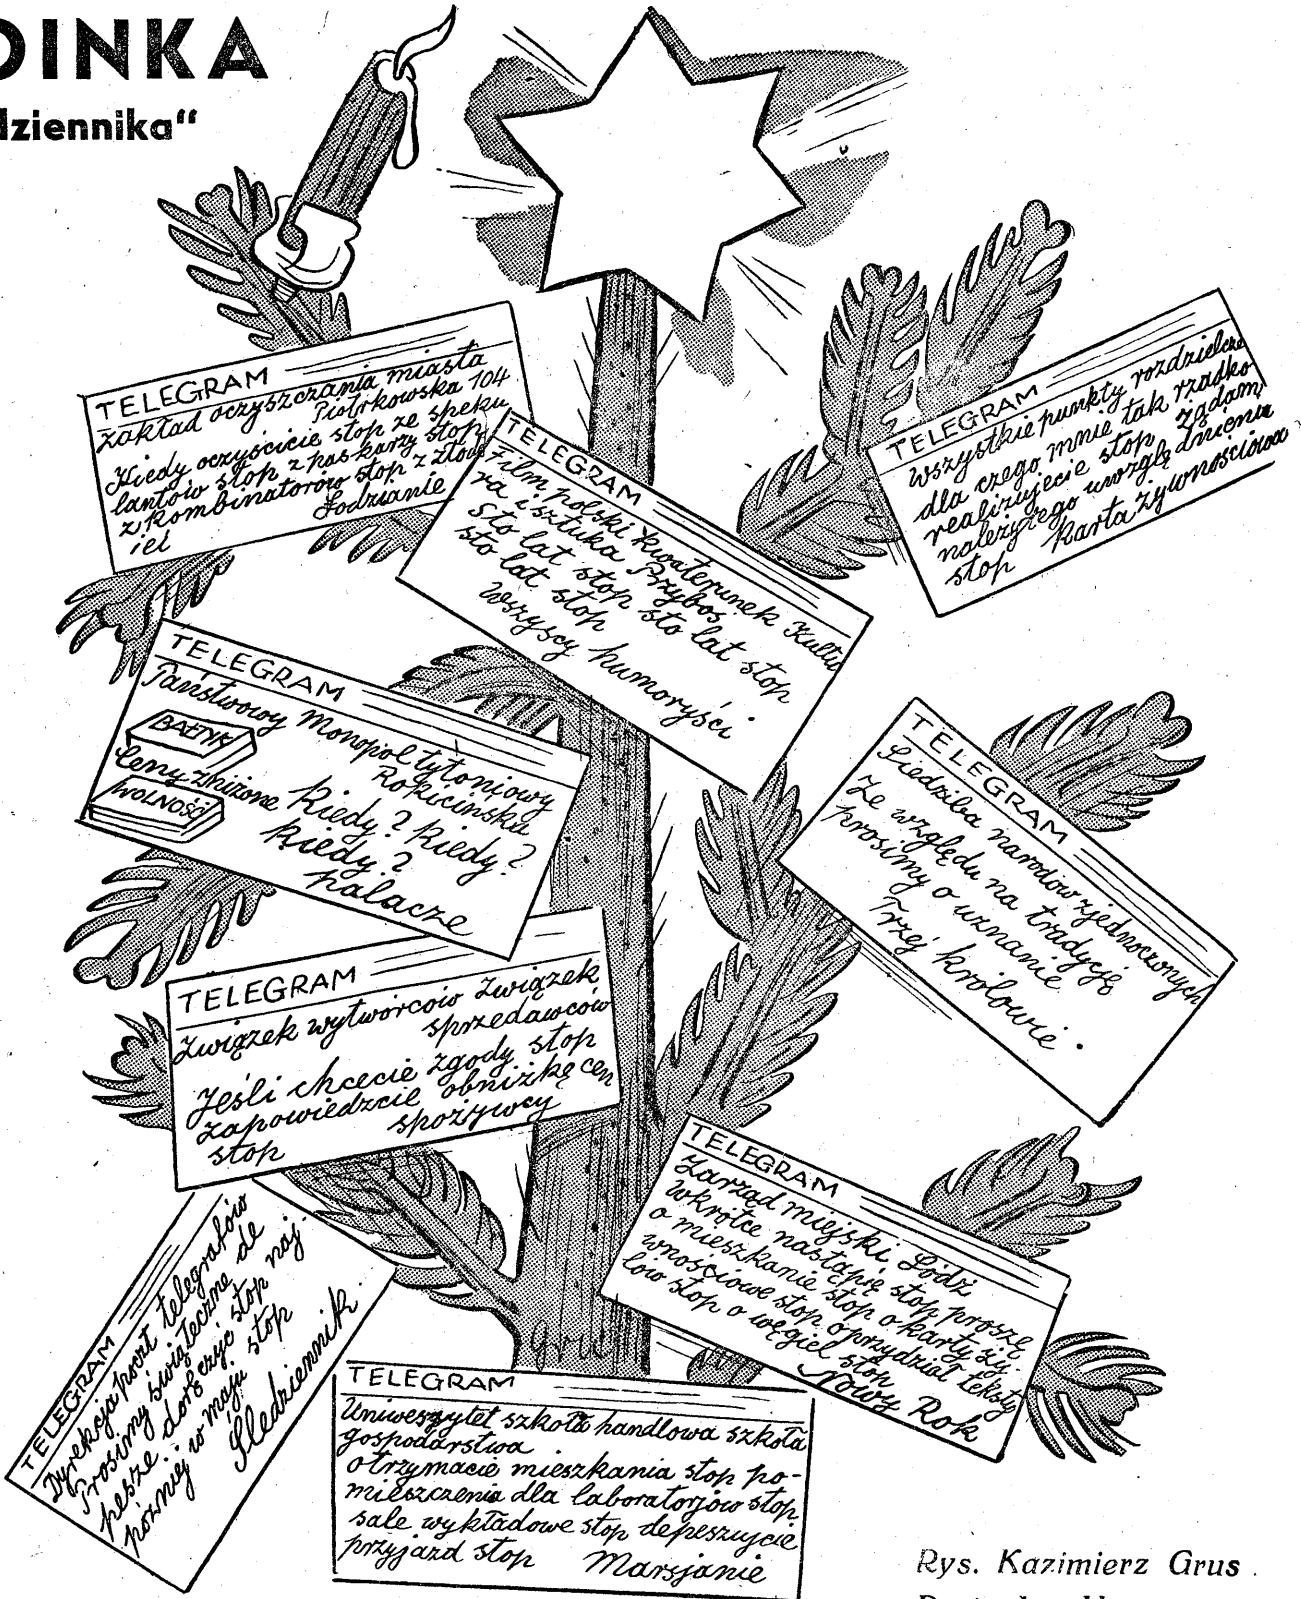 OINKA
dziennika“
TELEGRAM
Zakład oczyszczania miasta
Piotrkowska 104
Kiedy oczyścicie stop ze speku
lantów stop z paskarzy stop
z kombinatorów stop z złodz
iei Łodzianie
TELEGRAM
Film polski kwaterunek Kultu
ra i sztuka Przyboś
Sto lat stop sto lat stop
sto lat stop
Wszyscy humoryści
TELEGRAM
Wszystkie punkty rozdzielcze
dla czego mnie tak rzadko
realizujecie stop żądam
należytego uwzględnienia
stop Karta żywnościowa
TELEGRAM
Państwowy Monopol tytoniowy
Rokicińska
BAŁTYK
Ceny zniżone Kiedy? Kiedy?
WOLNOŚĆ
Kiedy?
palacze
TELEGRAM
Siedziba narodów zjednoczonych
Ze względu na tradycję
prosimy o uznanie
Trzej królowie.
TELEGRAM
Związek wytwórców Związek
sprzedawców
Jeśli chcecie zgody stop
zapowiedzcie obniżkę cen
stop spożywcy
TELEGRAM
Zarząd miejski, Łódź
Wkrótce nastąpię stop proszę
o mieszkanie stop o karty ży-
wnościowe stop o przydział teksty
lów stop o węgiel stop
Nowy Rok
TELEGRAM
Dyrekcja poczt telegrafów
Prosimy świąteczne de
pesze doręczyć stop naj-
później w maju stop
Śledziennik.
Grus
TELEGRAM
Uniwerzytet szkoła handlowa szkoła
gospodarstwa
otrzymacie mieszkania stop po-
mieszczenia dla laboratorjów stop
sale wykładowe stop depeszujcie
przyjazd stop Marsjanie
Rys. Kazimierz Grus.